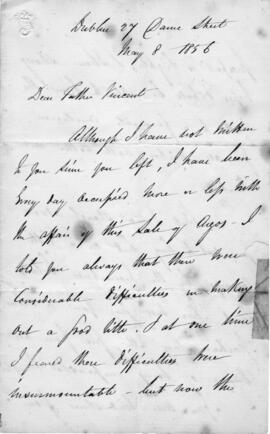 Dublin 27 Dame Street
May 8 1856
Dear Father Vincent
Although I have not written
to you since you left, I have been
every day occupied more or less with
the affair of this Sale of
I
told you always that there were
Considerable difficulties in making
out a good title. I at one time
I feared these difficulties were
insurmountable - but now the